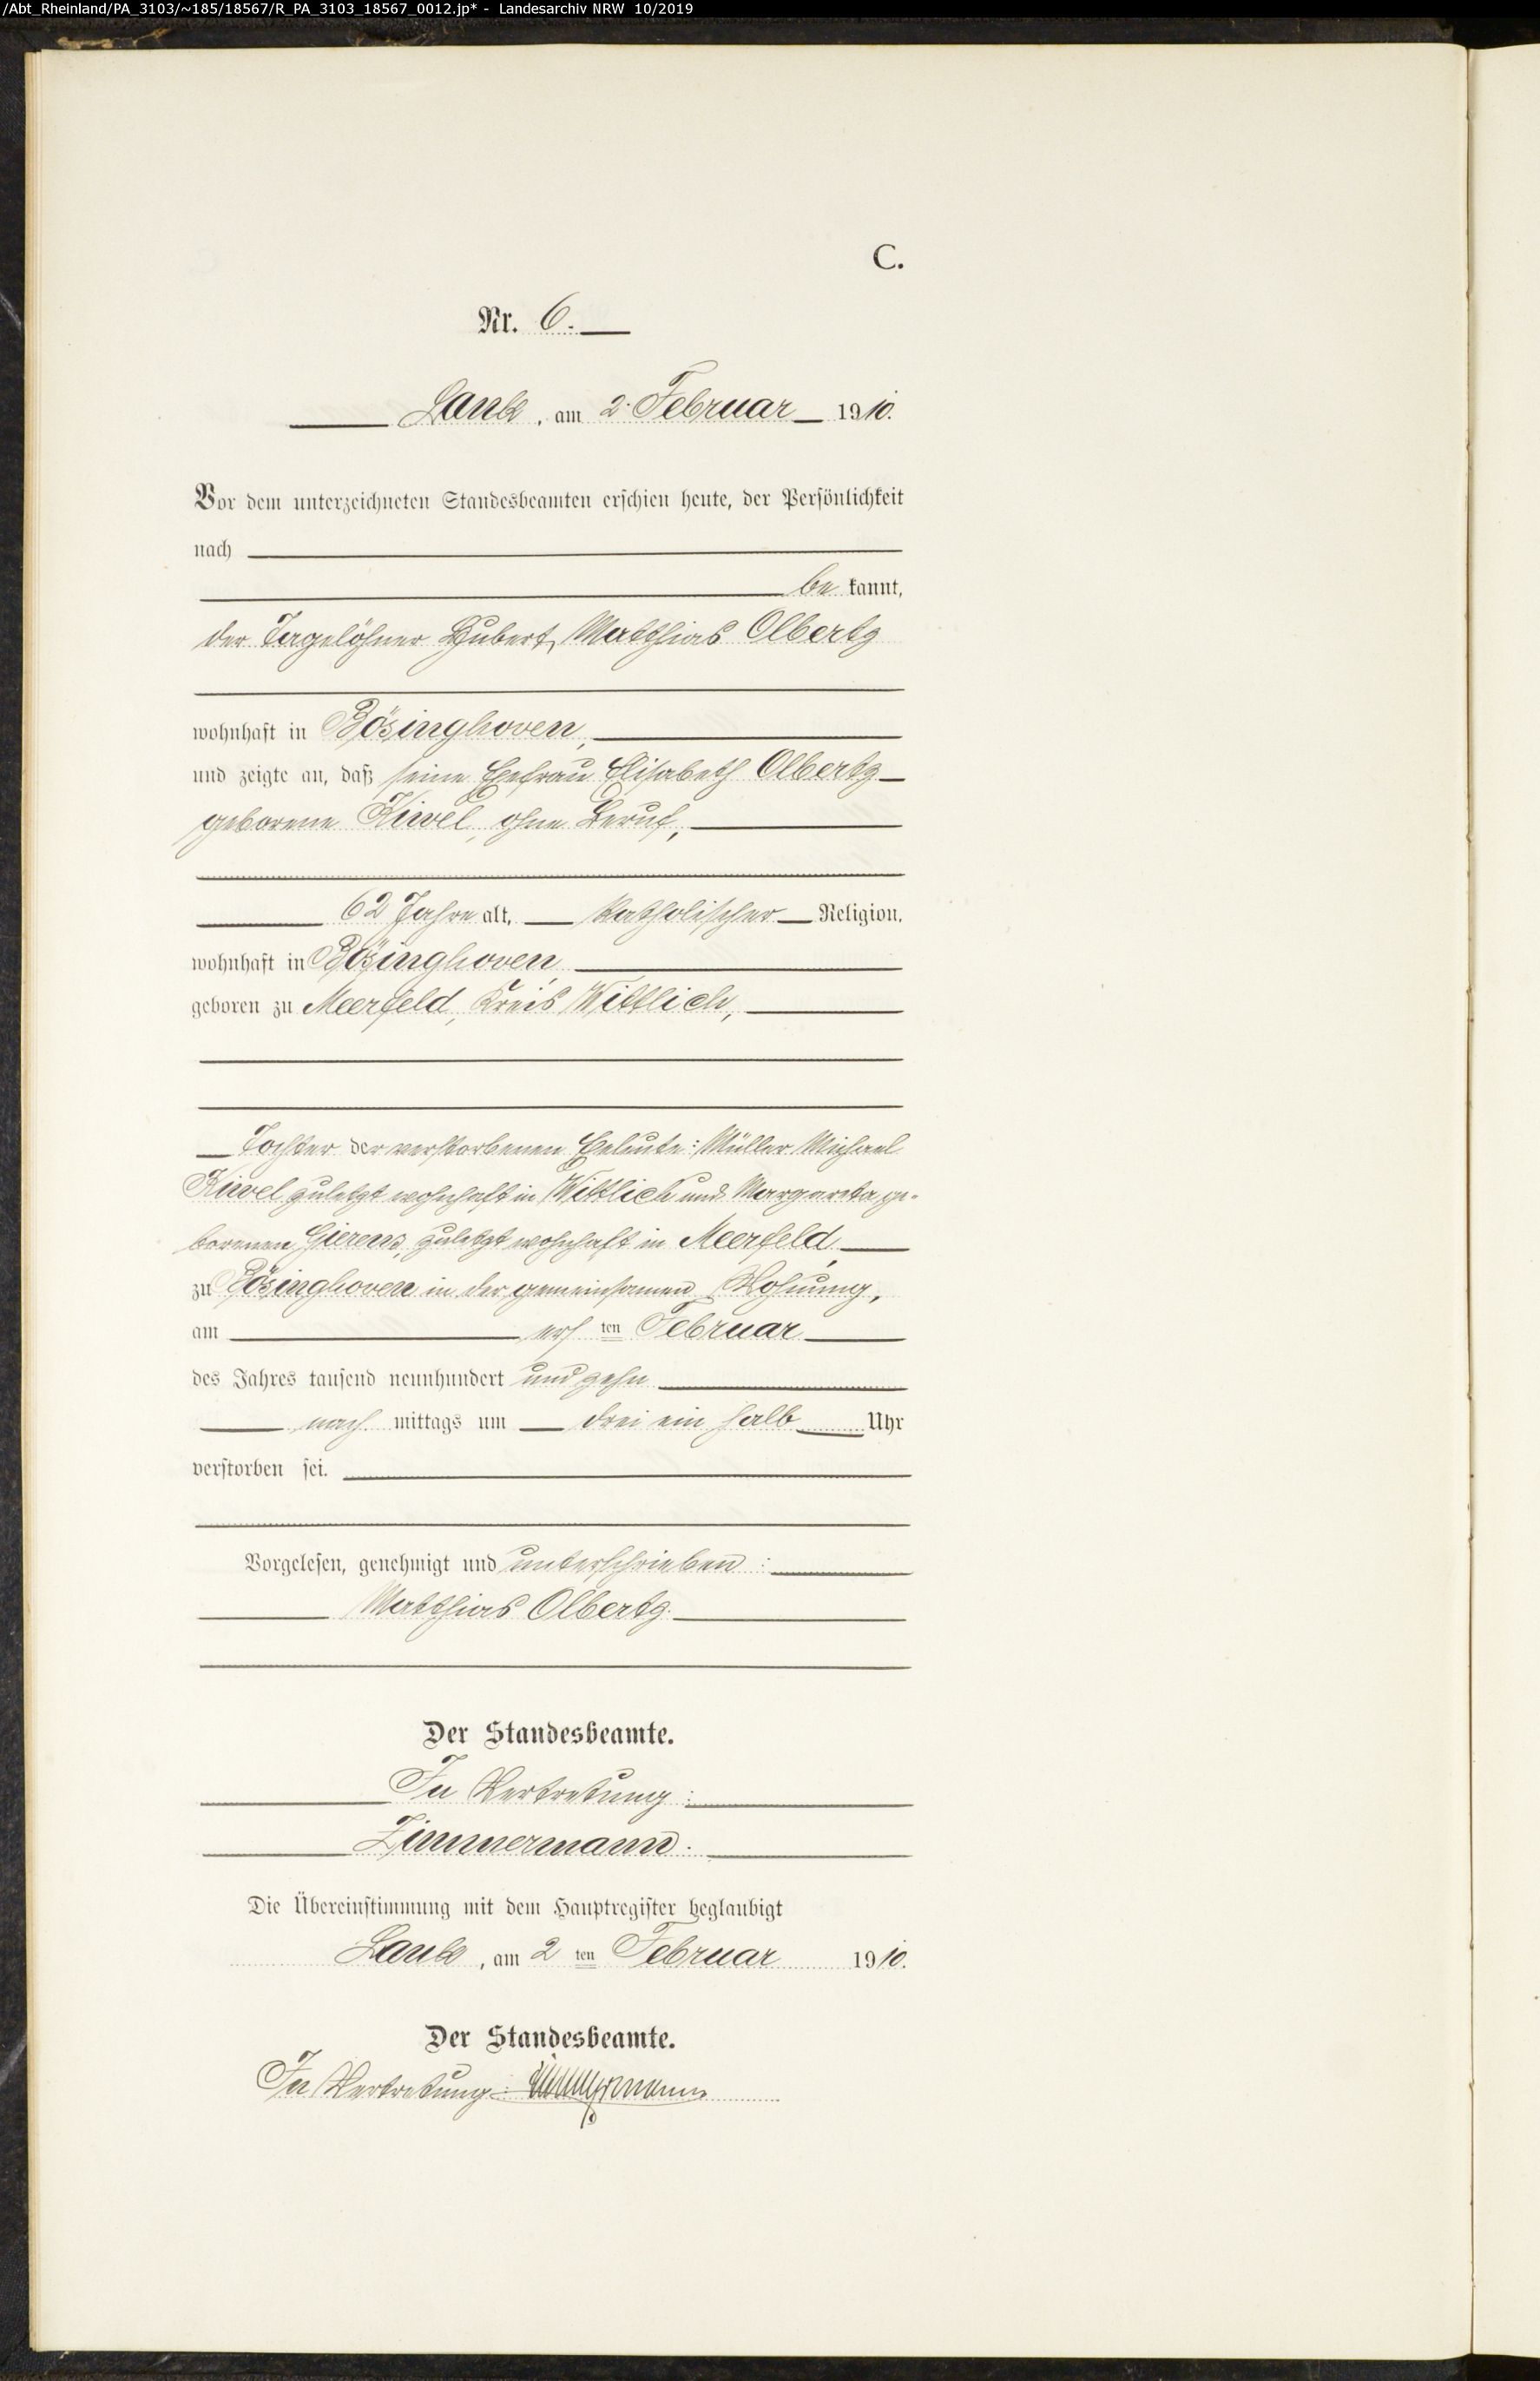 /Abt_Rheinland/PA_3103/~185/18567/R_PA_3103_18567_0012.jp* - Landesarchiv NRW 10/2019
C.
Nr. 6.
Lank, am 2. Februar 1910.
Vor dem unterzeichneten Standesbeamten erschien heute, der Persönlichkeit
nach
be kannt,
der Tagelöhner Hubert, Matthias Olbertz
wohnhaft in Bösinghoven,
und zeigte an, daß seine Ehefrau Elisabeth Olbertz
geborene Kiwel, ohne Beruf,
62 Jahre alt, katholischer Religion,
wohnhaft in Bösinghoven,
geboren zu Meerfeld, Kreis Wittlich,
Tochter der verstorbenen Eheleute: Müller Michael
Kiwel zuletzt wohnhaft in Wittlich und Margareta ge-
borenen Gierens, zuletzt wohnhaft in Meerfeld,
zu Bösinghoven in der gemeinsamen Wohnung,
am ers ten Februar
des Jahres tausend neunhundert und zehn
nach mittags um drei ein halb Uhr
verstorben sei.
Vorgelesen, genehmigt und unterschrieben:
Matthias Olbertz.
Der Standesbeamte.
In Vertretung:
Zimmermann.
Die Übereinstimmung mit dem Hauptregister beglaubigt
Lank, am 2 ten Februar 1910.
Der Standesbeamte.
In Vertretung: Zimmermann